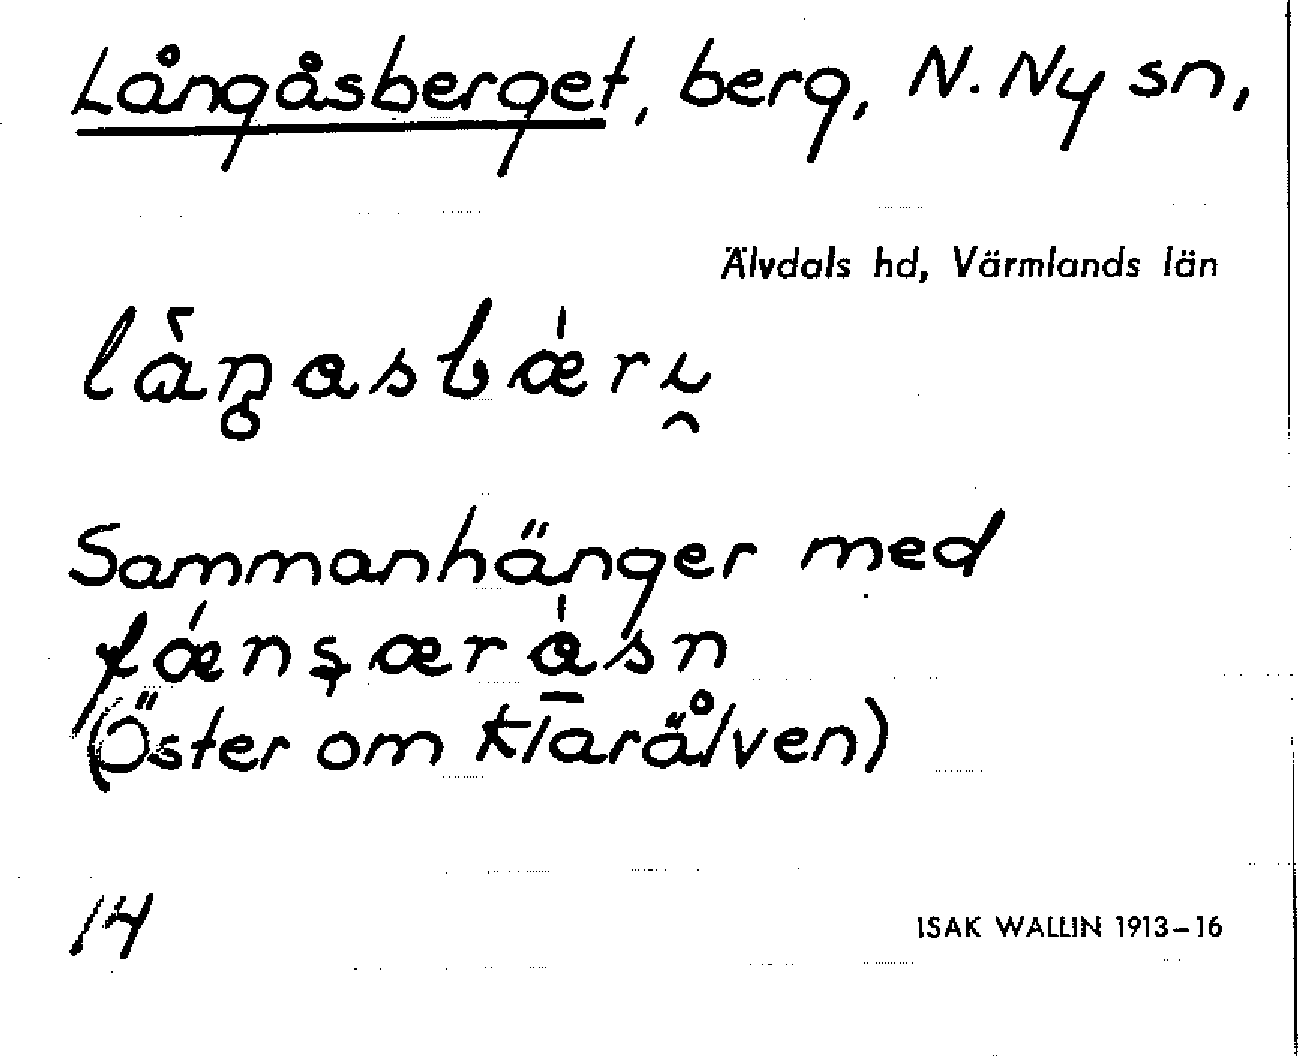 Långåsberget, berg, N. Ny sn,
Älvdals hd, Värmlands län
Sammanhänger med
(Öster om Klarälven)
14
ISAK WALLIN 1913–16